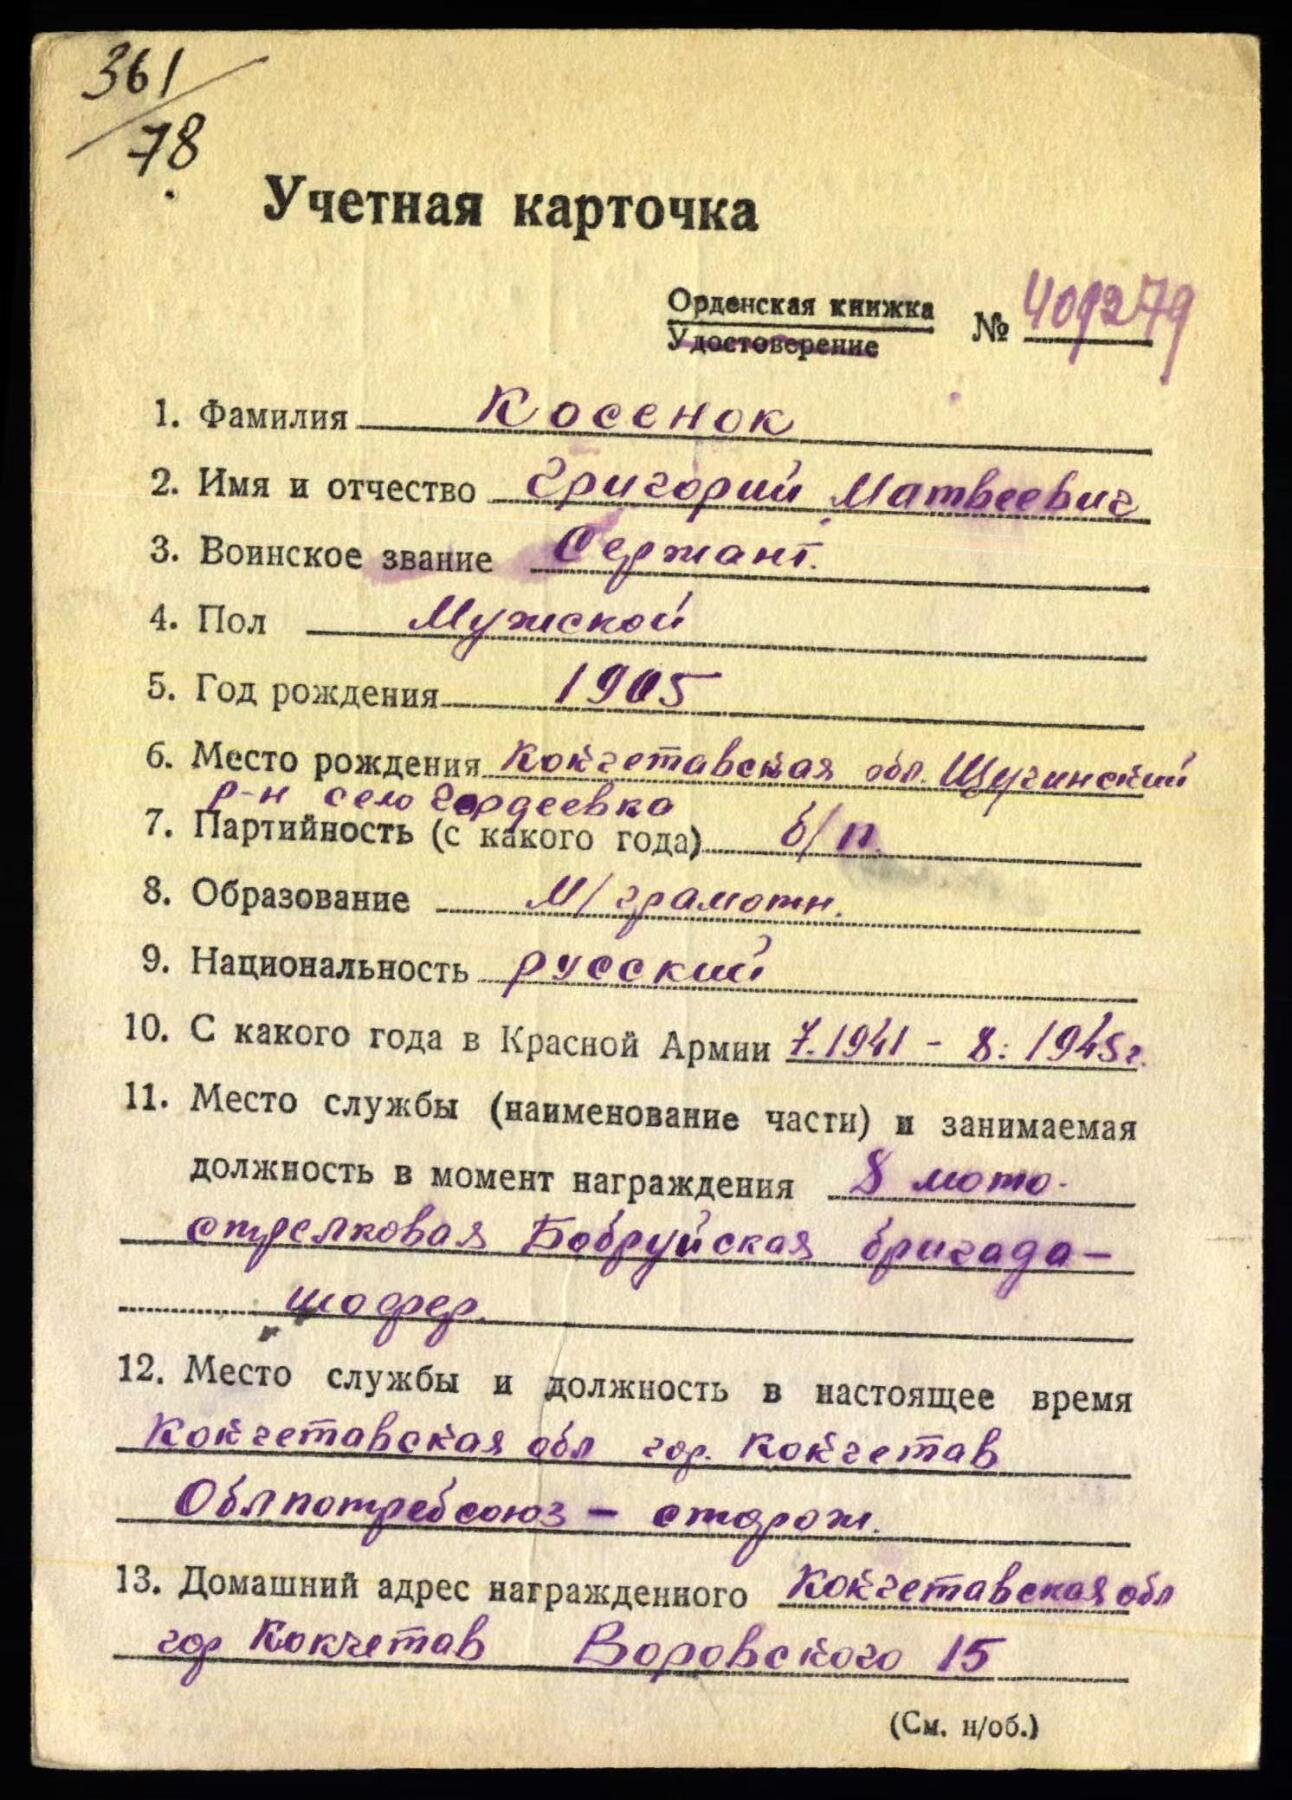 361
78
Учетная карточка
Орденская книжка
Удостоверение
№ 409279
1. Фамилия Косенок
2. Имя и отчество Григорий Матвеевич
3. Воинское звание Сержант.
4. Пол Мужской
5. Год рождения 1905
6. Место рождения Кокчетавская обл. Щучинский
р-н село Гордеевка
7. Партийность (с какого года) б/п.
8. Образование М/грамотн.
9. Национальность русский
10. С какого года в Красной Армии 7.1941 - 8.1945г.
11. Место службы (наименование части) и занимаемая
должность в момент награждения 8 мото-
стрелковая Бобруйская бригада -
шофер.
12. Место службы и должность в настоящее время
Кокчетавская обл гор. Кокчетав
Облпотребсоюз - сторож.
13. Домашний адрес награжденного Кокчетавская обл
гор Кокчетав Воровского 15
(См. н/об.)